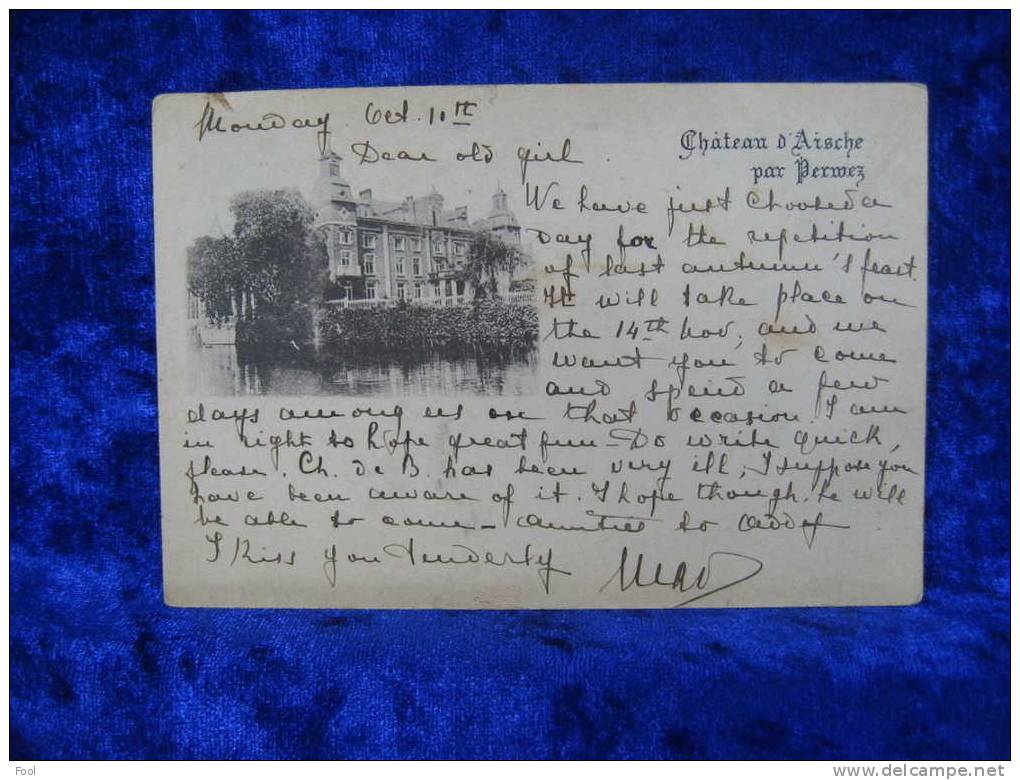 Monday Oct. 11th
Dear old girl.
Château d'Aische
par Perwez
We have just choosed a
day for the repetition
of last autumn's feast.
It will take place on
the 14th Nov, and we
want you to come
and spend a few
days among us on that occasion. I am
in right to hope great fun - Do write quick,
please. Ch. de B. has been very ill, I suppose you
have been aware of it. I hope though, he will
be able to come - to
I kiss you tenderly
Fool
http://www.delcampe.net